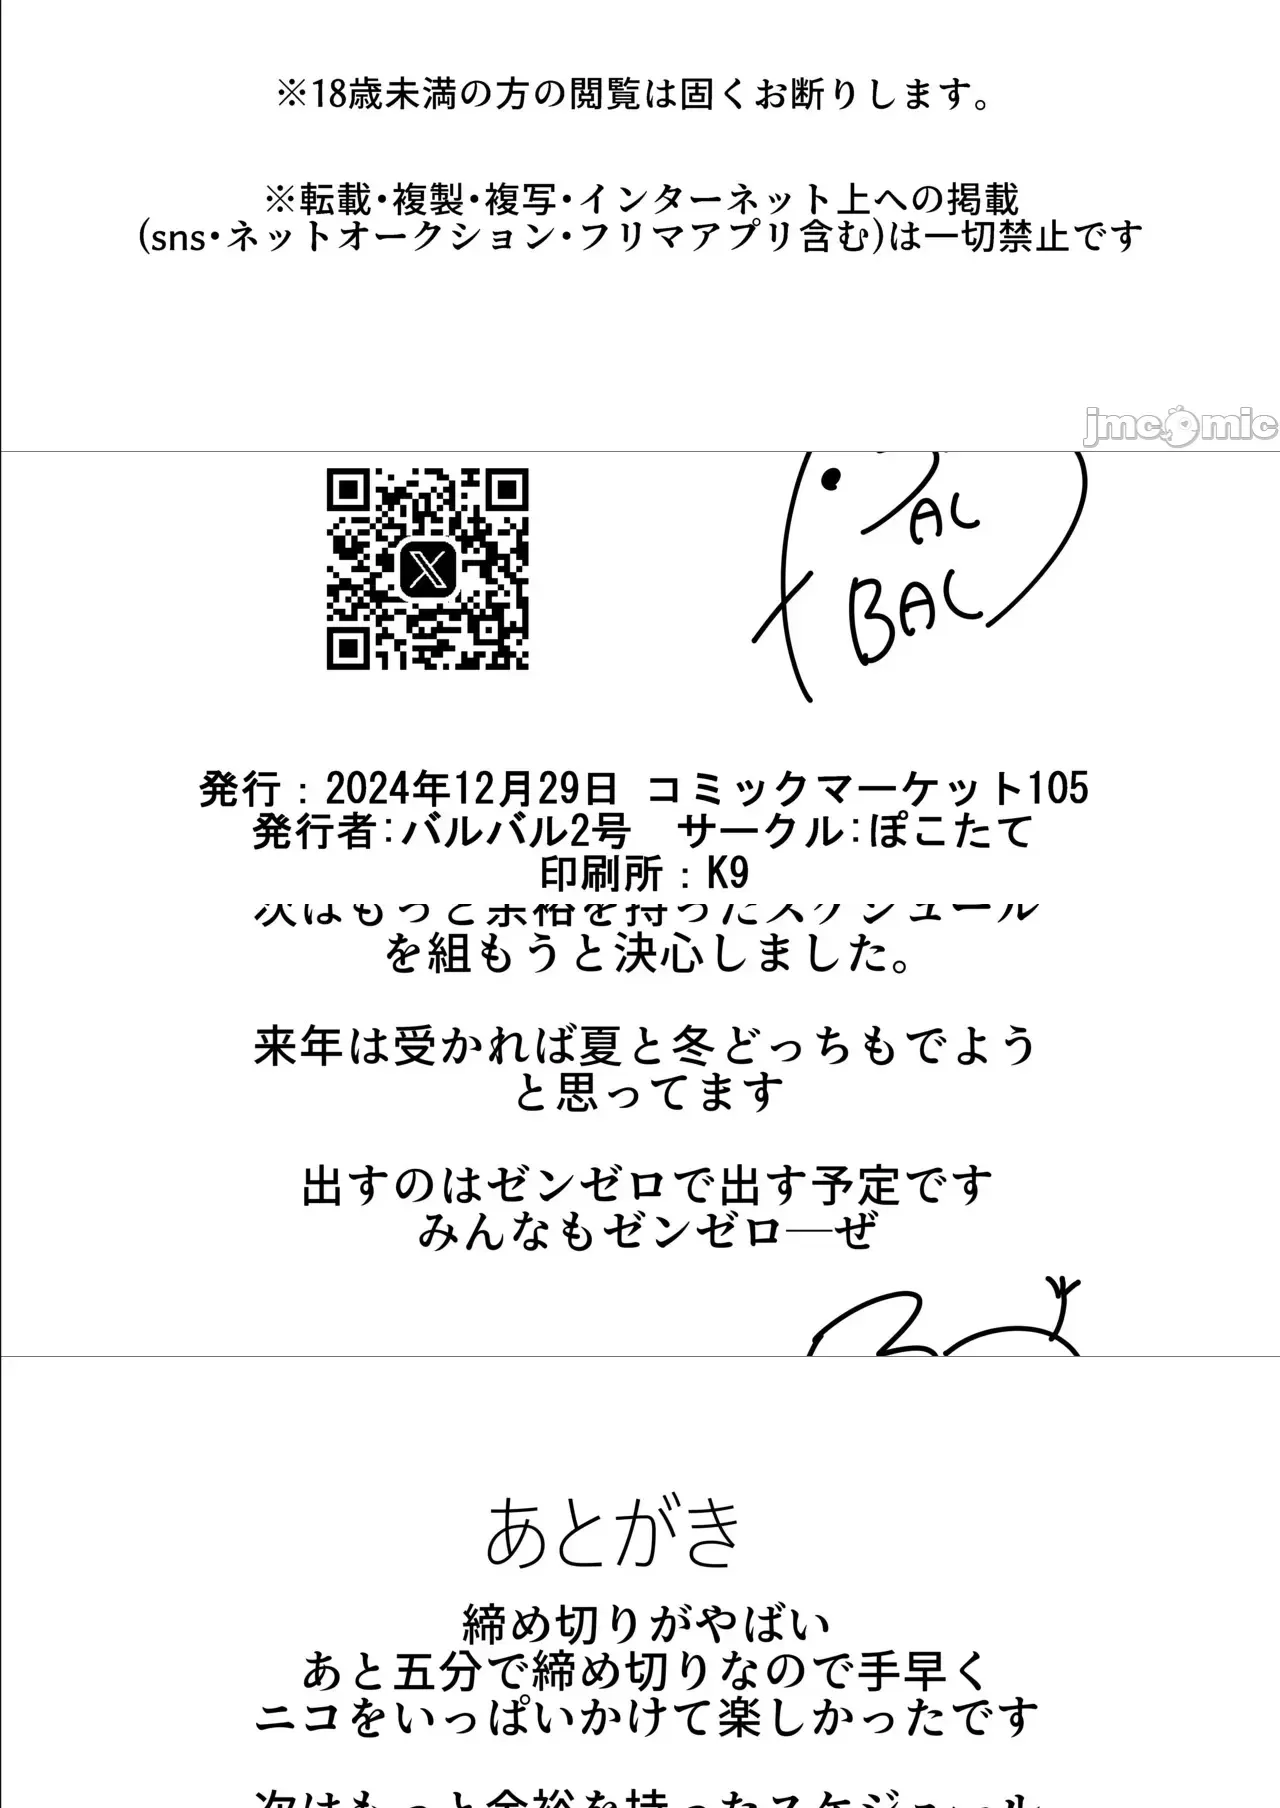 ※18歳未満の方の閲覧は固くお断りします。
※転載・複製・複写・インターネット上への掲載
(sns・ネットオークション・フリマアプリ含む)は一切禁止です
jmcomic
BAL
BAL
発行：2024年12月29日 コミックマーケット105
発行者:バルバル2号　サークル:ぽこたて
印刷所：K9
次はもっと余裕を持ったスケジュール
を組もうと決心しました。
来年は受かれば夏と冬どっちもでよう
と思ってます
出すのはゼンゼロで出す予定です
みんなもゼンゼロ―ぜ
あとがき
締め切りがやばい
あと五分で締め切りなので手早く
ニコをいっぱいかけて楽しかったです
次はもっと余裕を持ったスケジュール